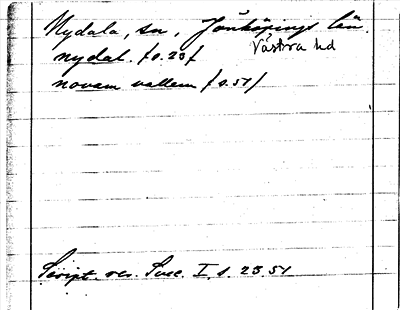 Nydala, sn, Jönköpings län.
Västra hd
nydal. /s. 23/
novam vallem /s. 51/
Script. rer. Svec. I, s. 23. 51